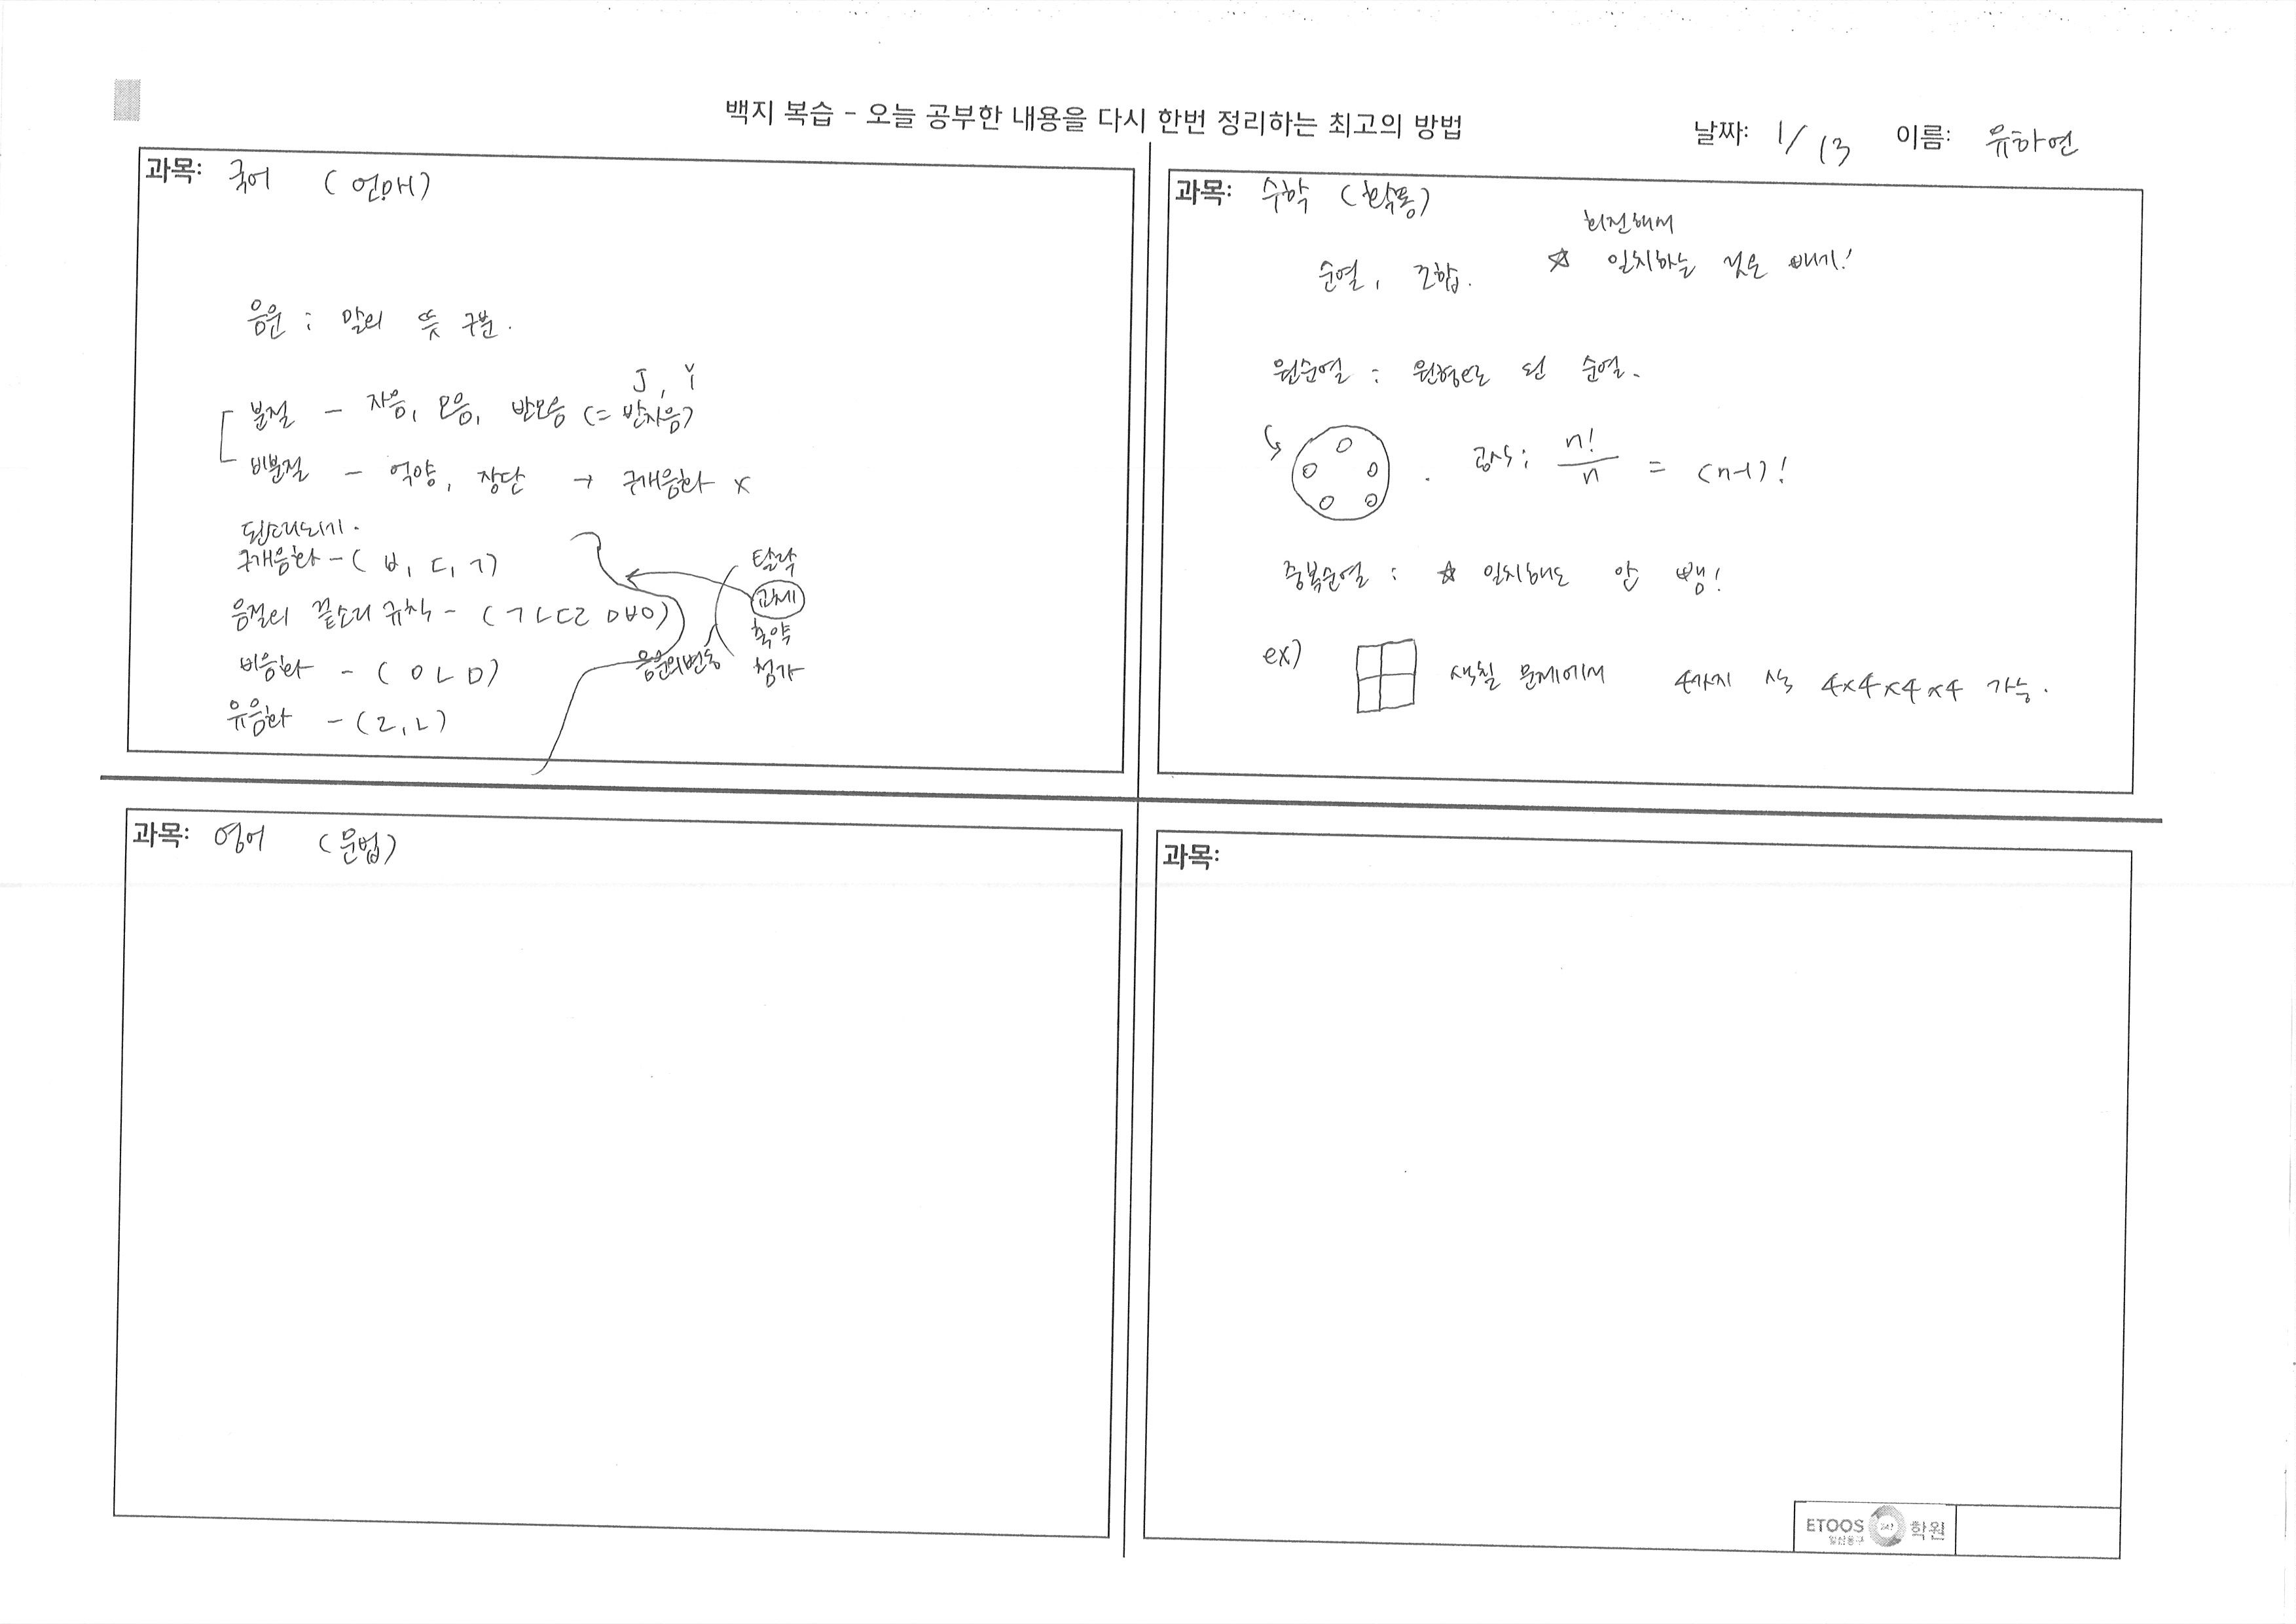 백지 복습 - 오늘 공부한 내용을 다시 한번 정리하는 최고의 방법
날짜: 1/13 이름: 유하연
과목: 국어 (언매)
음운 : 말의 뜻 구분.
J, Y
분절 - 자음, 모음, 반모음 (= 반자음)
비분절 - 억양, 장단 → 구개음화 x
된소리되기.
구개음화 - ( ㅂ, ㄷ, ㄱ)
음절의 끝소리 규칙 - ( ㄱㄴㄷㄹ ㅁㅂㅇ)
비음화 - ( ㅇㄴㅁ)
유음화 - (ㄹ, ㄴ)
음운의 변동
탈락
교체
축약
첨가
과목: 수학 (확통)
순열, 조합.
회전해서
☆ 일치하는 것은 빼기!
원순열 : 원형으로 된 순열.
공식: n!/n = (n-1)!
중복순열 : ☆ 일치해도 안 뺌!
ex) 색칠 문제에서 4가지 색 4x4x4x4 가능.
과목: 영어 (문법)
과목:
ETOOS 247 학원